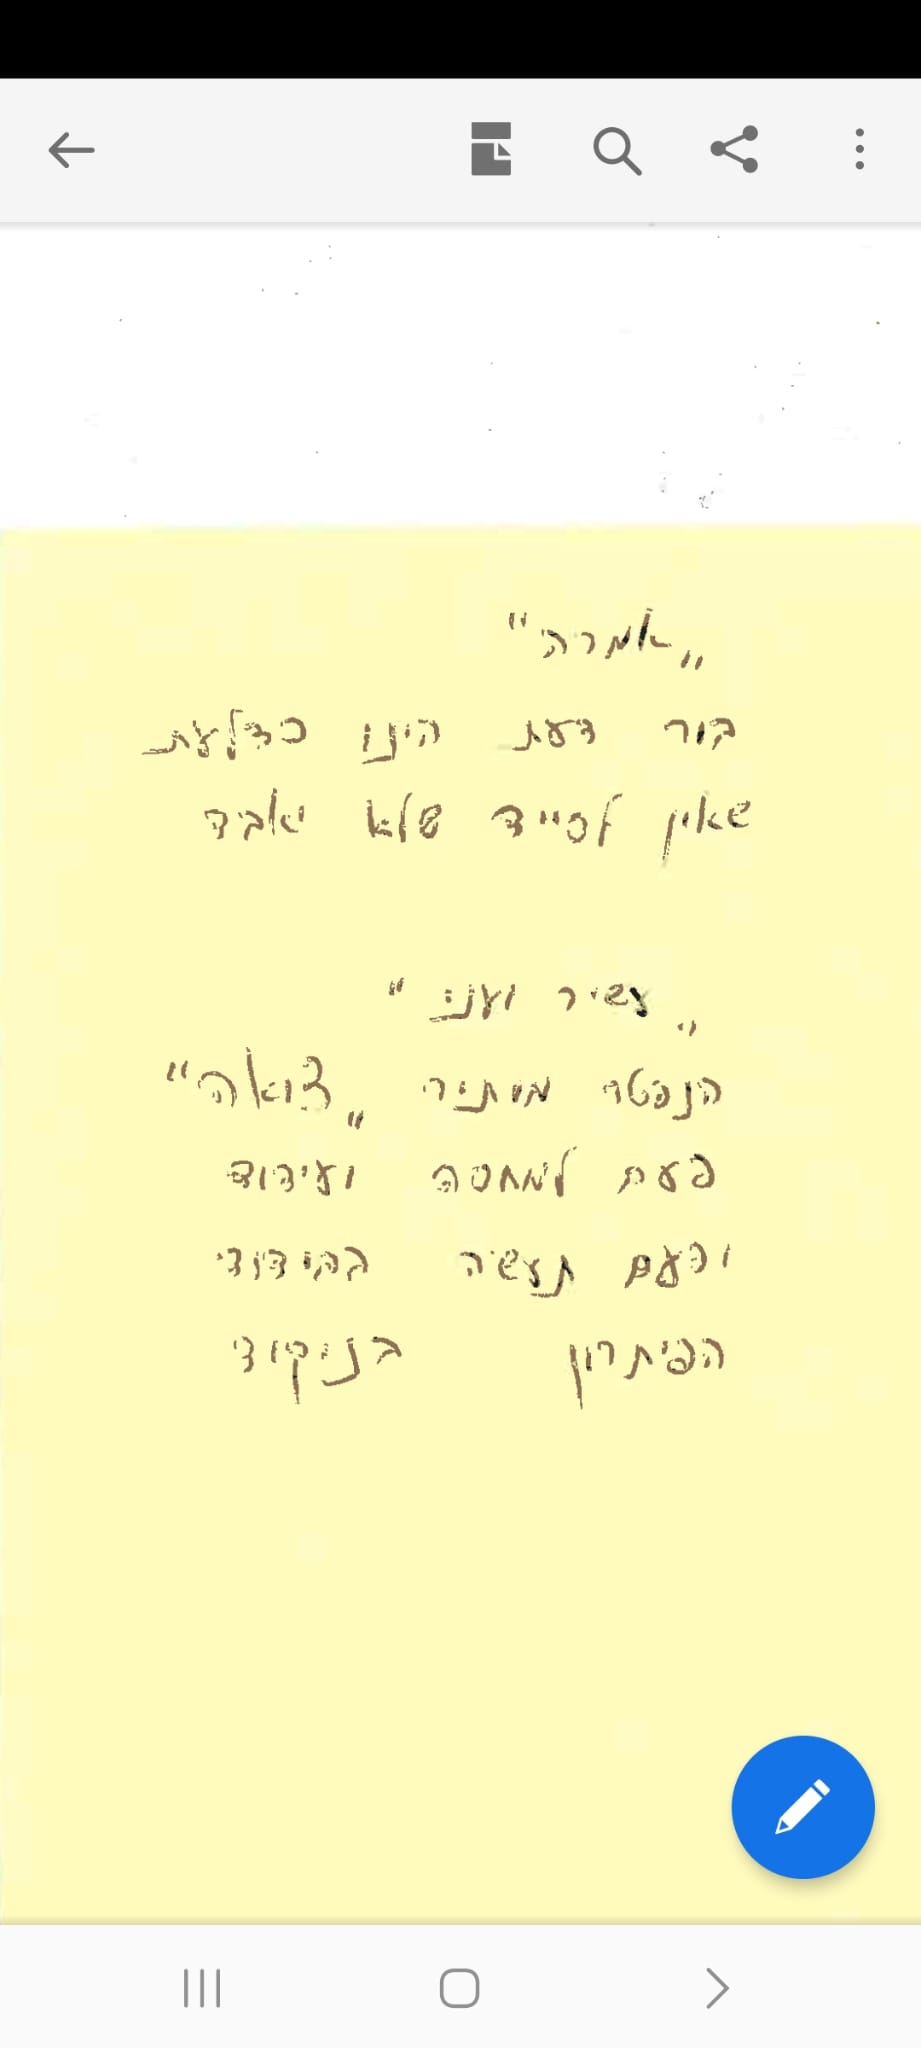 "אמרה"
בור דעת הינו כדלעת
שאין לזייד שלא יאבד
"עשיר ועני"
הנפטר מותיר "צואה"
פעם למחסה ועירוד
ופעם תעשה בהידודי
הפיתרון בניקוד